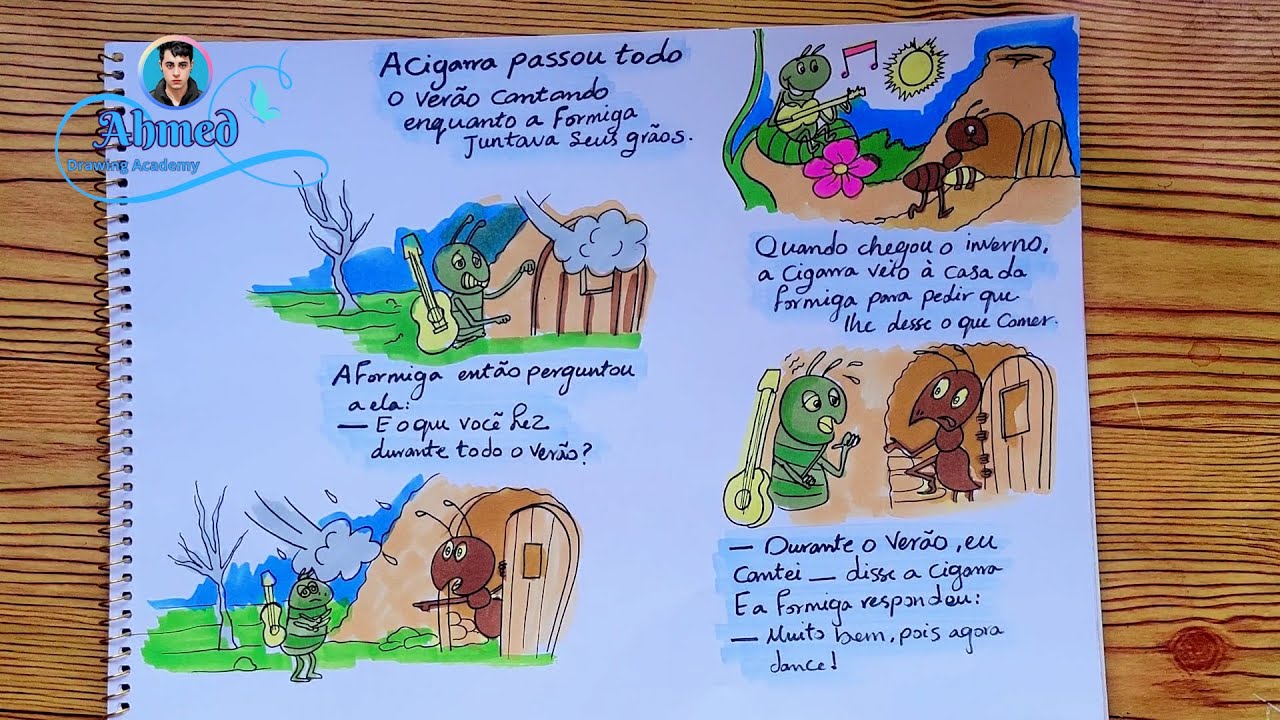 Ahmed
Drawing Academy
A Cigarra passou todo
o Verão Cantando
enquanto a Formiga
Juntava Seus grãos.
Quando chegou o inverno,
a Cigarra veio à Casa da
formiga para pedir que
lhe desse o que Comer.
A Formiga então perguntou
a ela:
— E o que você fez
durante todo o verão?
— Durante o verão, eu
Cantei — disse a Cigarra
E a formiga respondeu:
— Muito bem, pois agora
dance!